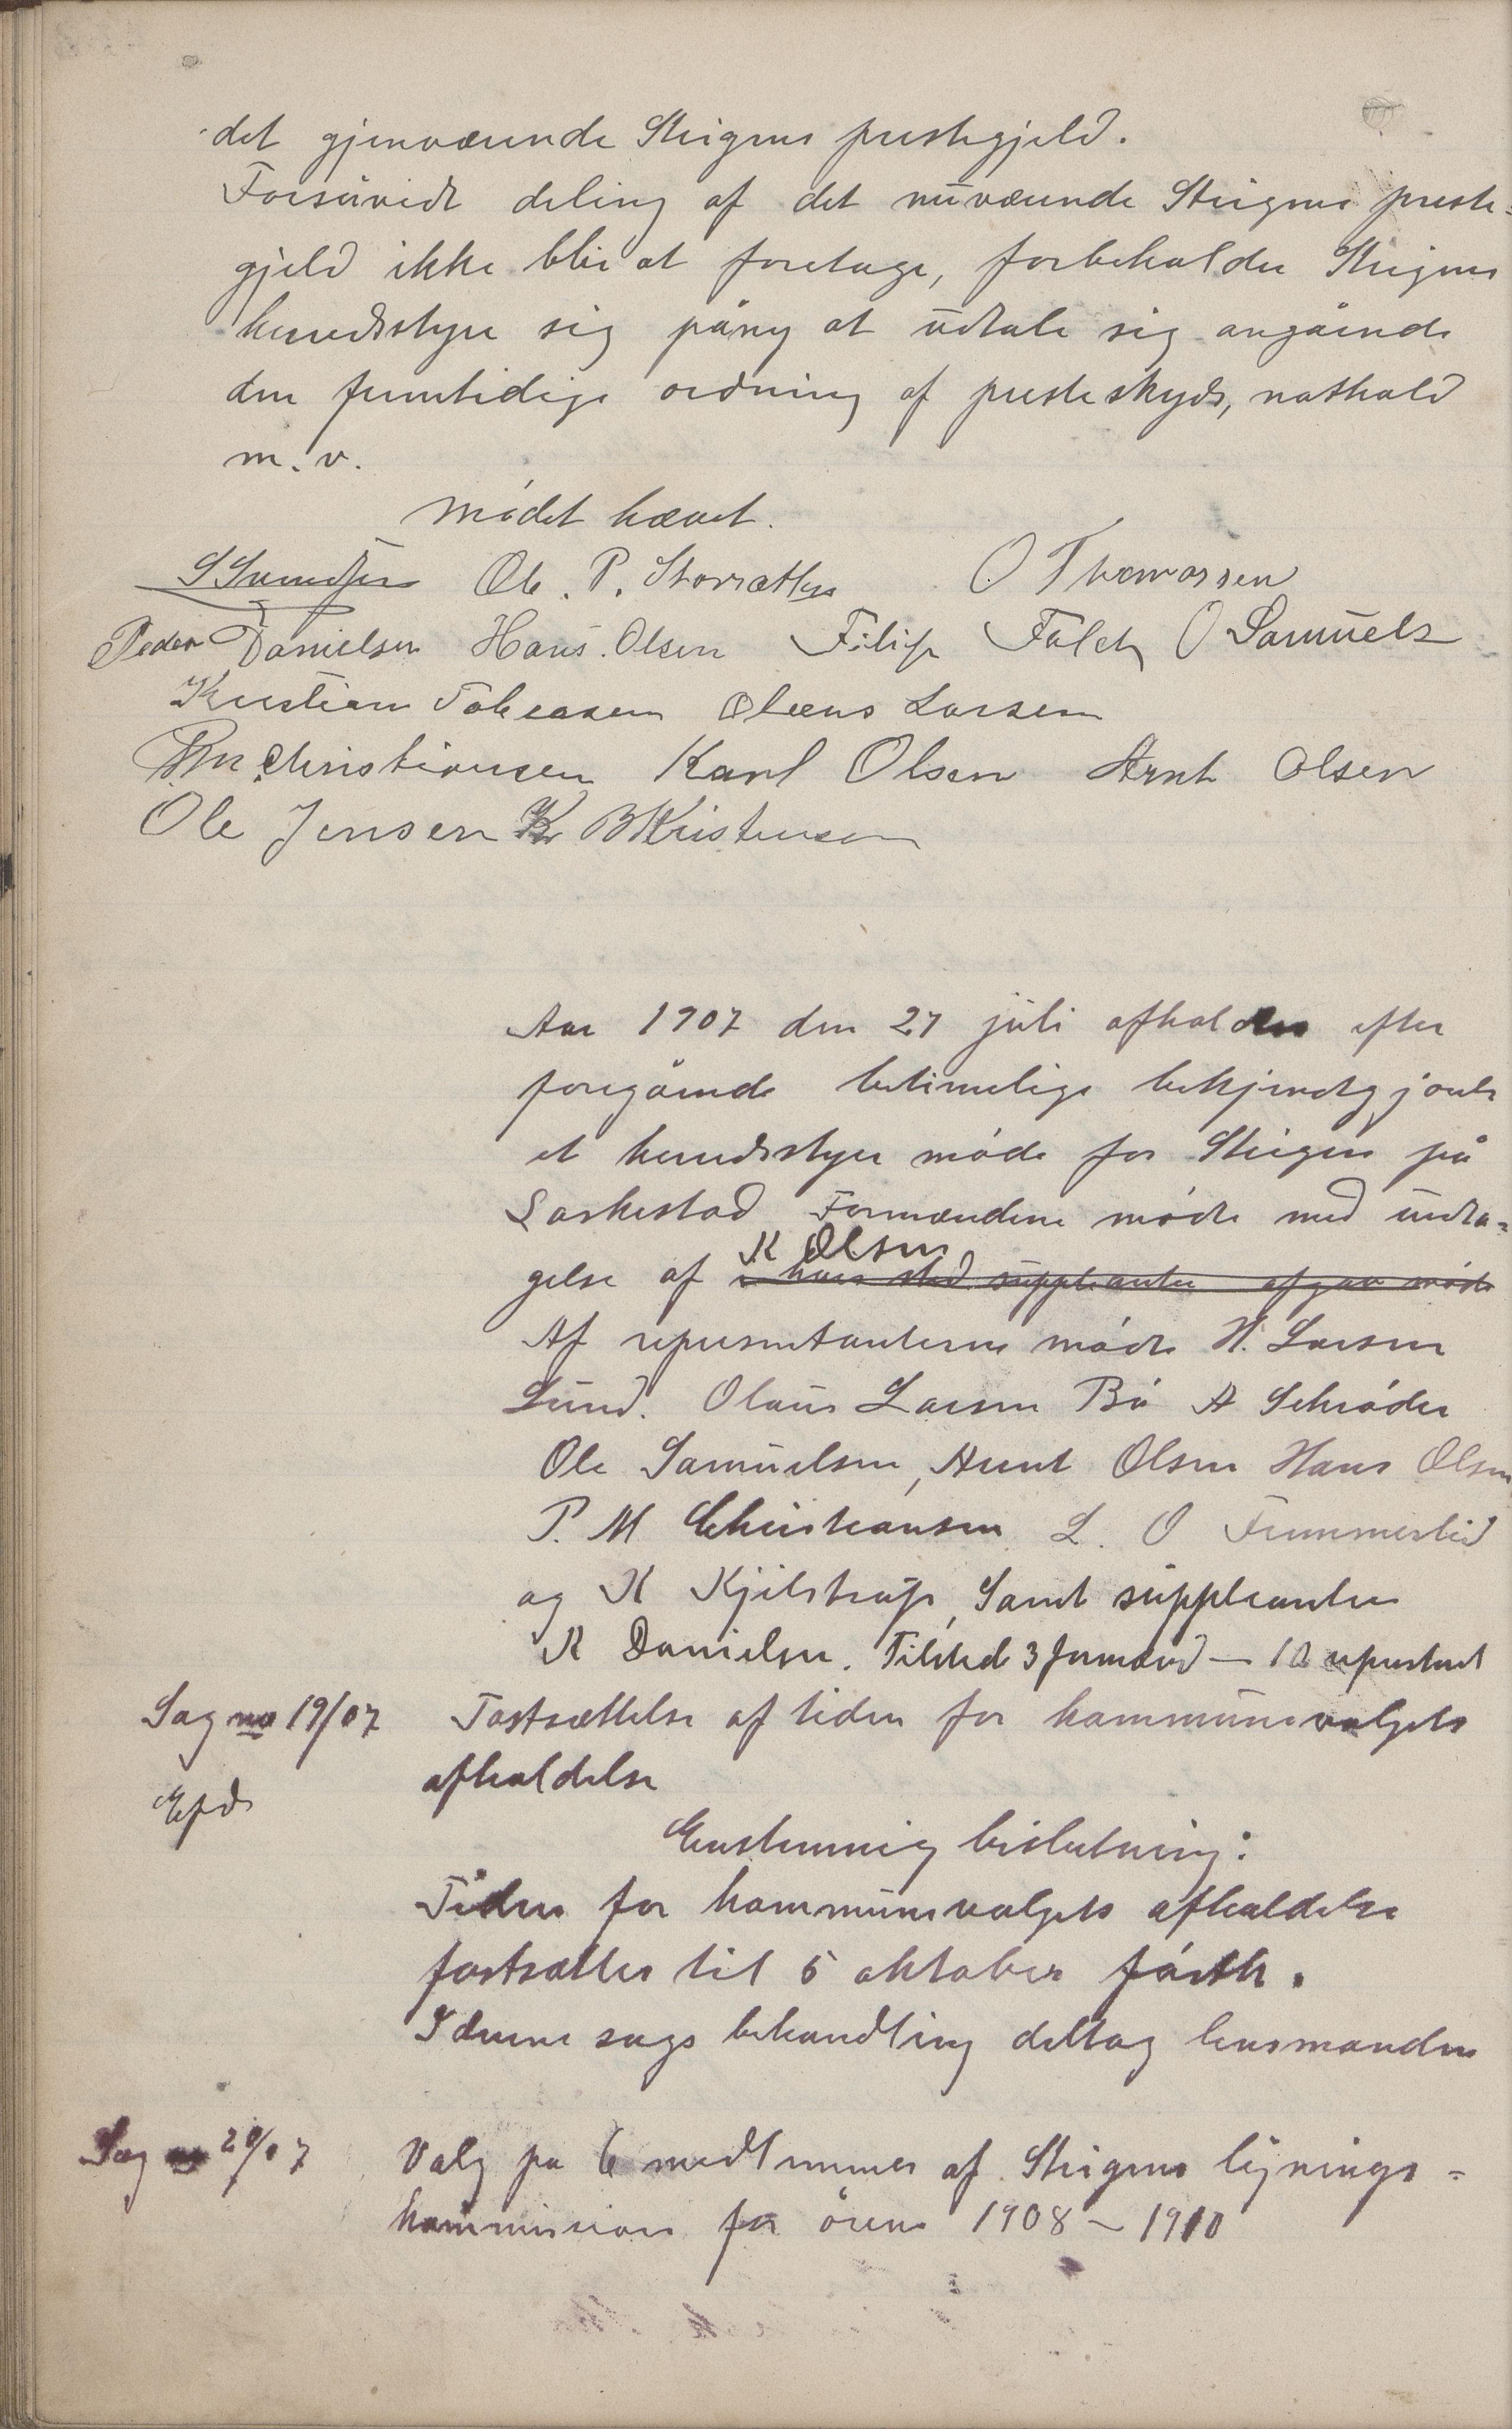 det gjenværende Steigens prestegjeld.
Forsåvidt deling af det nuværende Steigens preste=
gjeld ikke blir at foretage, forbeholder Steigens
herredsstyre sig påny at udtale sig angående
den fremtidige ordning af presteskyds, nathold
m. v.
Mødet hævet.
Ole. P. Storsæther O Thomassen
Peder Danielsen Hans. Olsen Filip Falch O Samuels
Kristian Tobeasen Olæus Larsen
PM Christiansen Karl Olsen Arnt Olsen
Ole Jensen K B Kristensen
Aar 1907 den 27 juli afholdes efter
foregående betimelige bekjendtgjørelse
et herredsstyre møde for Steigen på
Laskestad Formændene mødte med undta=
gelse af K Olsen
i hans sted suppleanter afgav møde
Af representanterne mødte H. Larsen
Lund. Olaus Larsen Bø A Schrøder
Ole Samuelsen, Arent Olsen Hans Olsen
P. M Christiansen L. O Frummerlid
og K Kjilstrup, Samt suppleanten
R Danielsen. Tilsted 3 formænd — 10 represtent
Sag no 19/07 Fastsættelse af tiden for kommunevalgets
afholdelse
Efd
Enstemmig beslutning:
Tiden for kommunevalgets afholdelse
fastsættes til 5 oktober førstk.
I denne sags behandling deltog lensmanden
Sag no 20/07 Valg på 6 medlemmer af Steigens lignings=
kommission for årene 1908 – 1910